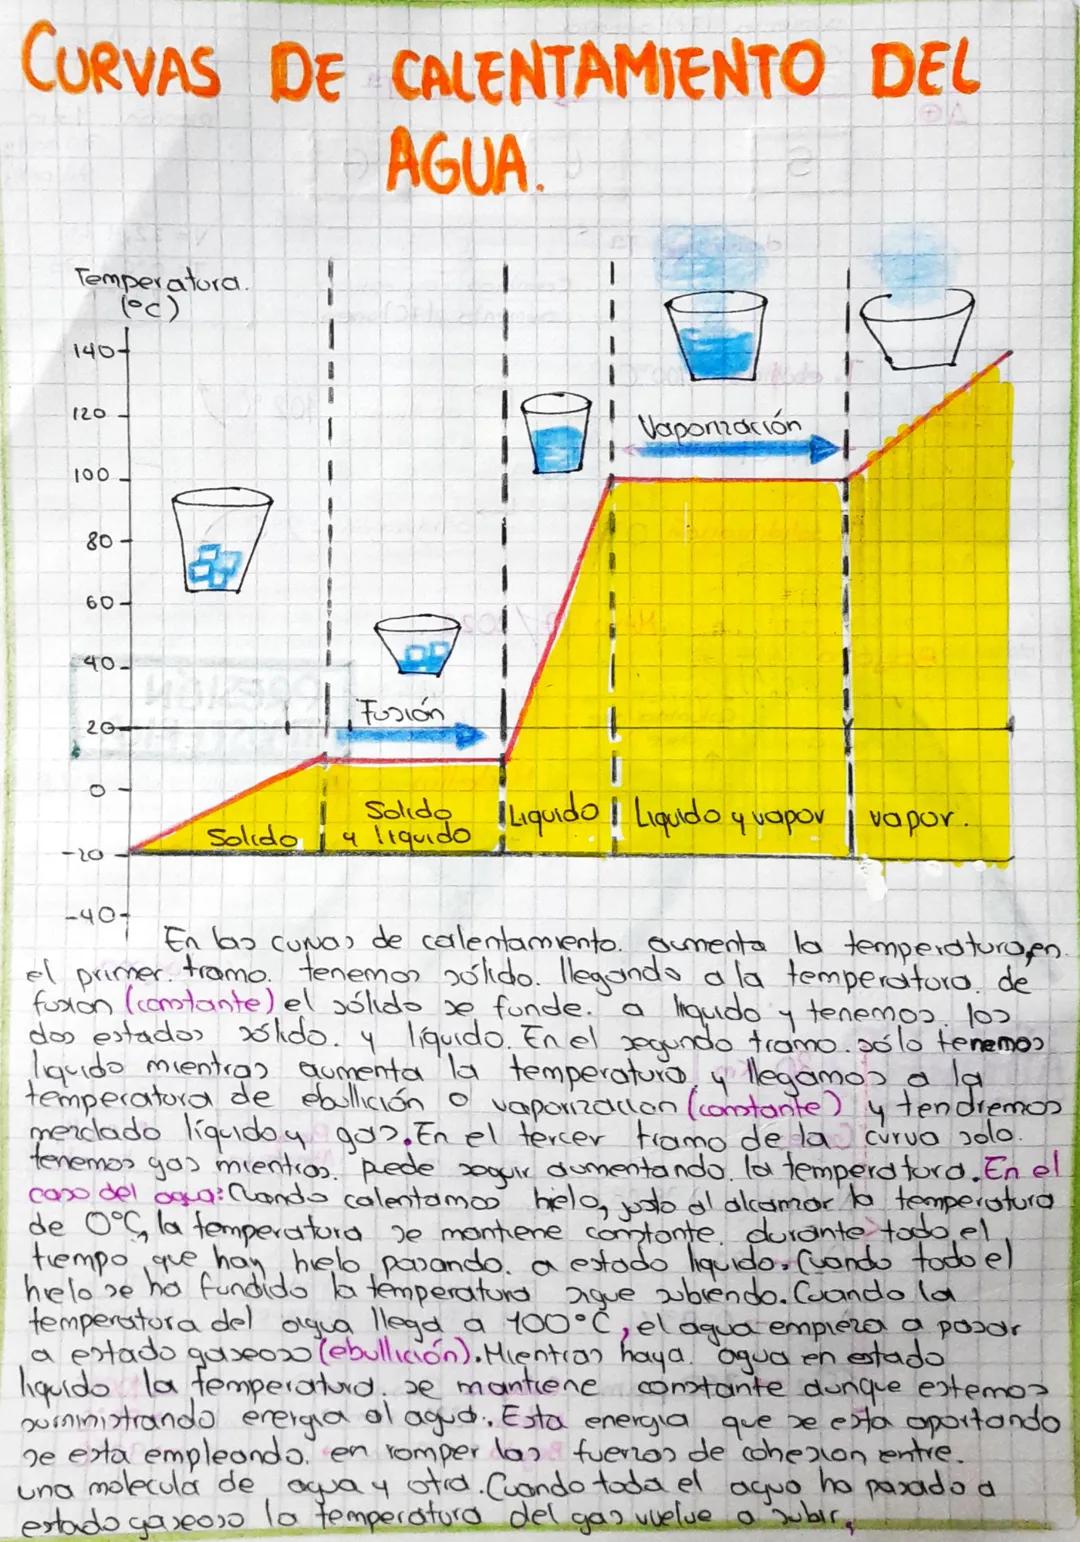 CURVAS DE CALENTAMIENTO DEL
AGUA.
Temperatura.
(°C)
140
120
100
80
60
40
20
0
-20
-40
Vaporización
Fusión
Solido
Solido
y liquido
Liquido
Liquido y vapor
vapor.
En las curvas de calentamiento. aumenta la temperatura, en.
el primer. tramo. tenemos sólido. llegando a la temperatura. de
fusion (constante) el sólido se funde. a liquido y tenemos. los
dos estados sólido. y líquido. En el segundo tramo. sólo tenemos
liquido mientras aumenta la temperatura, y llegamos a la
temperatura de ebullición o vaporizacion (constante) y tendremos
mezclado líquido y gas. En el tercer tramo de la curva solo.
tenemos gas mientras. puede seguir aumentando. la temperatura. En el
caso del agua: Cuando calentamos hielo, justo al alcanzar la temperatura
de 0°C, la temperatura se mantiene constante. durante todo el
tiempo que hay hielo pasando. a estado liquido. Cuando todo el
hielo se ha fundido la temperatura sigue subiendo. Cuando la
temperatura del agua llega a 100°C, el agua empieza a pasar
a estado gaseoso (ebullición). Mientras haya. agua en estado
liquido la temperatura. se mantiene constante aunque estemos
suministrando energia al agua. Esta energia que se esta aportando
se esta empleando. en romper las fuerzas de cohesion entre.
una molecula de agua y otra. Cuando toda el agua ha pasado a
estado gaseoso la temperatura del gas vuelve a subir.